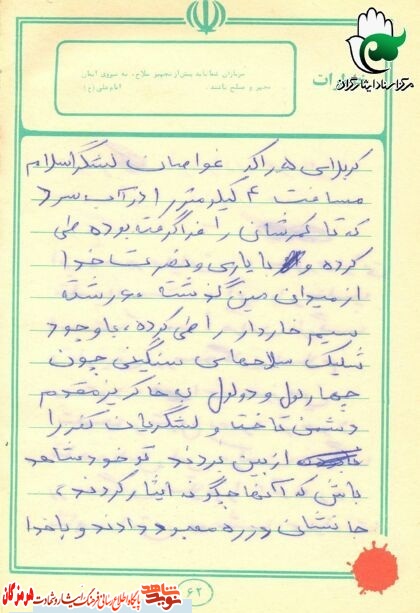 سربازان شما باید بیش از تجهیز سلاح، به نیروی ایمان
مجهز و مسلح باشند. امام علی (ع)
مرکز اسناد ایثارگران
کربلای ۵ را که غواصان لشگر اسلام
مسافت ۴ کیلومتر را در آب سرد
که تا کمرشان را فرا گرفته بوده طی
کرده و با یاری و نصرت خدا
از میدان مین گذشته ۶۰ رشته
سیم خاردار را طی کرده، با وجود
شلیک سلاحهای سنگینی چون
چهار لول و دو لول به خاکریز مقدم
دشمن تاخته و لشگریان کفر را
از بین بردند تو خود شاهد
باش که آنها چگونه ایثار کردند،
جانشان در ره معبود دادند و با خدا
۶۲
نوید شاهد
پایگاه اطلاع رسانی فرهنگ ایثار و شهادت هرمزگان